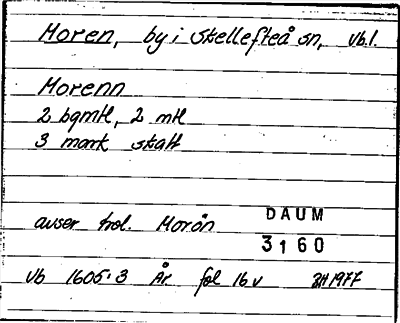 Moren, by i Skellefteå sn, Vb.l.
Morenn
2 bgmtl, 2 mtl
3 mark skatt
avser trol. Morön
DAUM
3160
Vb 1605:3 År fol 16 v BH 1977